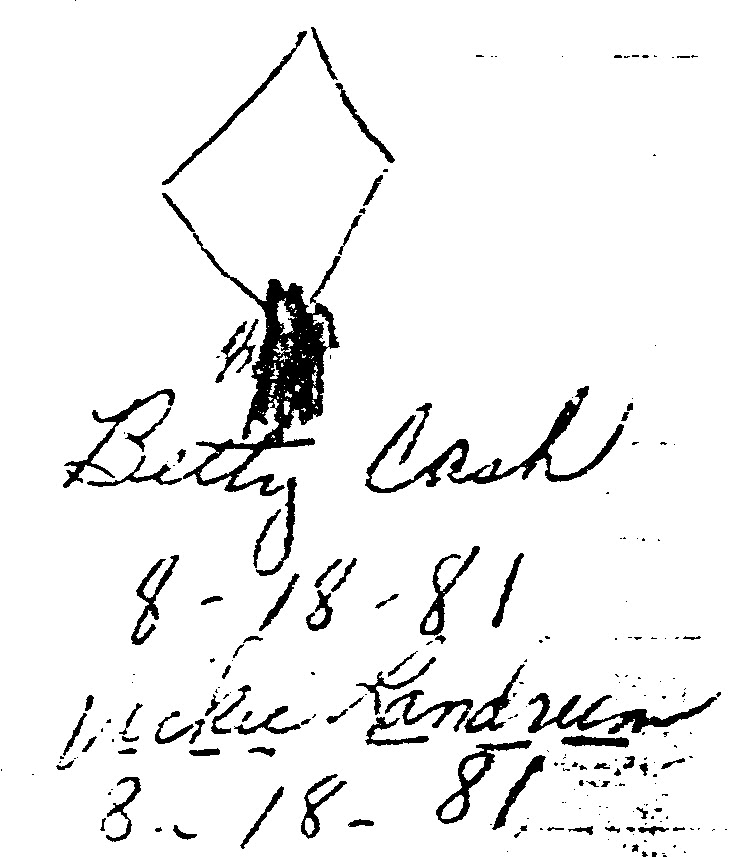 Betty Cash
8-18-81
Vickie Landrum
8-18-81